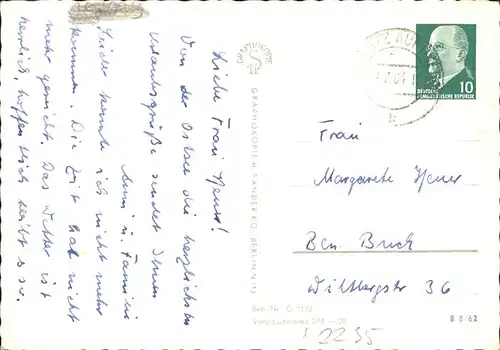 Liebe Frau Heuer!
Von der Ostsee die herzlichsten
Urlaubsgrüße sendet Ihnen
Anni u. Familie
Leider konnte ich nicht mehr
kommen. Die Zeit hat nicht
mehr gereicht. Das Wetter ist
herrlich, hoffentlich bleibt es so.
GRAPHOKOPIE H. SANDER KG. BERLIN N
10
DEUTSCHE
DEMOKRATISCHE REPUBLIK
Frau
Margarete Heuer
Bln. Buch
Wiltbergstr 36
Best.-Nr. G 1172
B 8/62
2235